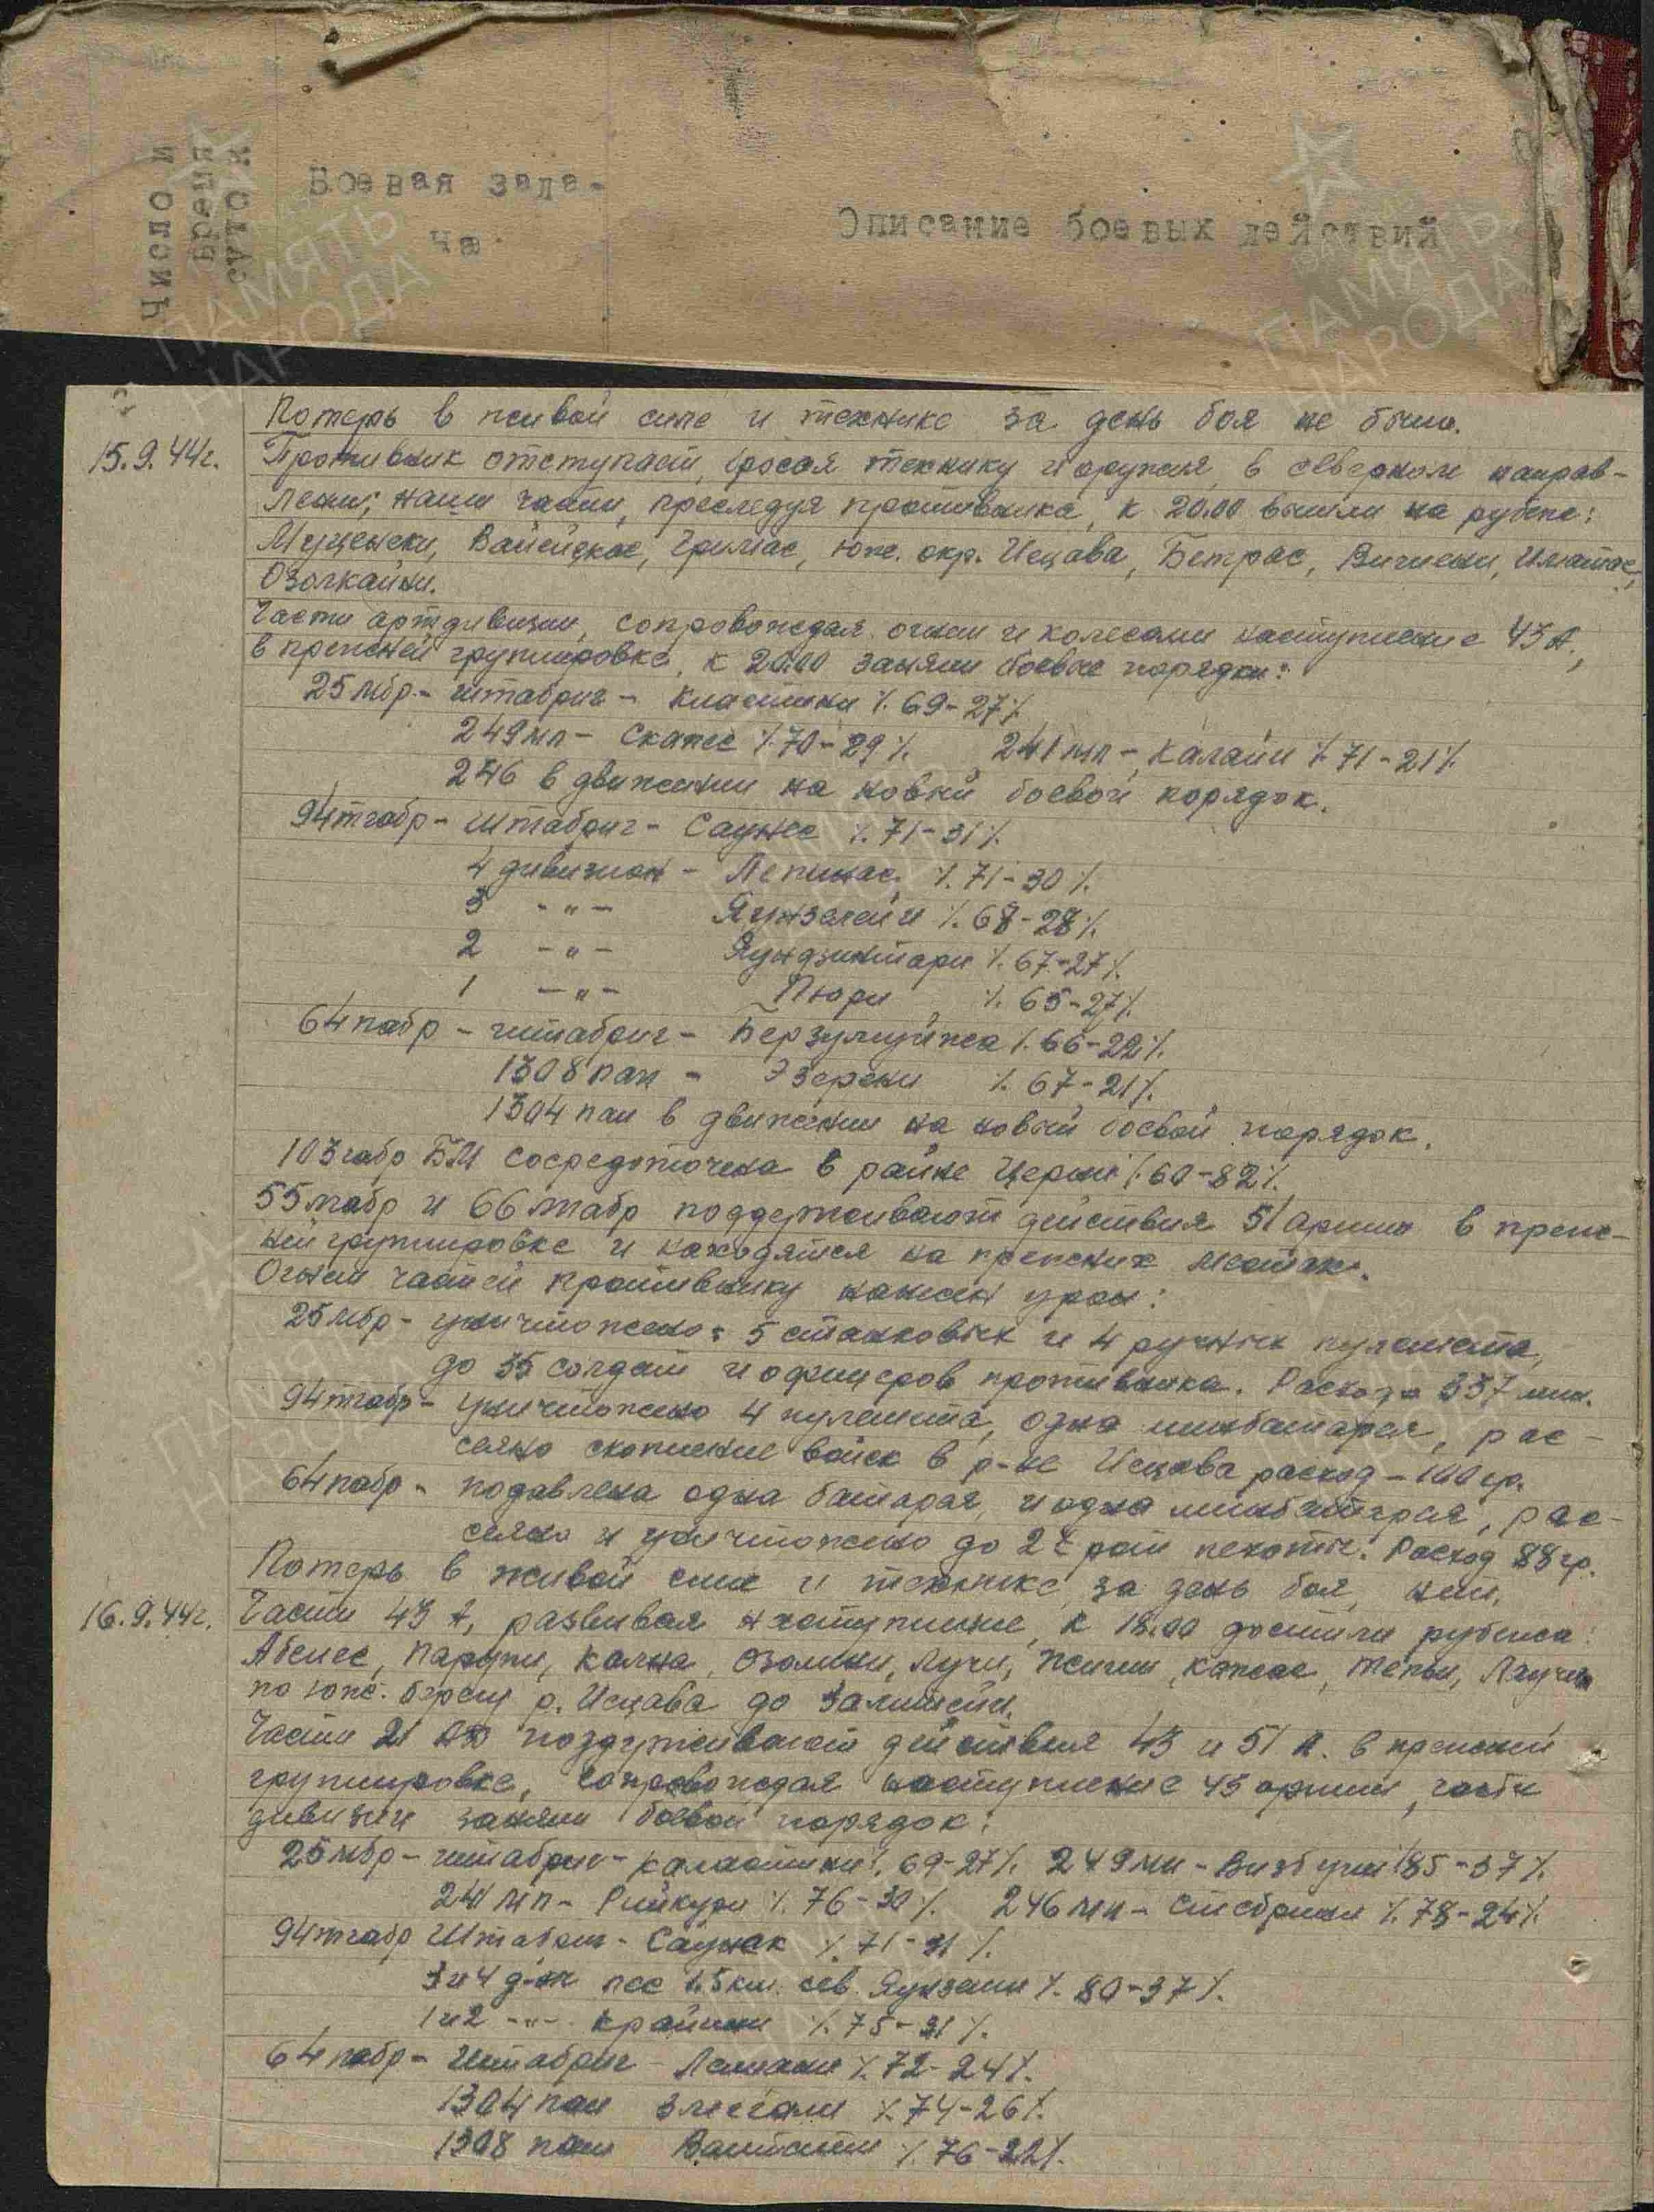 Число и
время
суток
Боевая зада-
ча
Описание боевых действий
ПАМЯТЬ
НАРОДА
ПАМЯТЬ
НАРОДА
Потерь в живой силе и технике за день боя не было.
15.9.44г. Противник отступает, бросая технику и оружия, в северном направ-
лении; наши части, преследуя противника, к 20.00 вышли на рубеж:
Муценеки, Гримас, юж. окр. Иецава, Бетрас,
Озолкални.
Части артдивизии, сопровождая огнем и колесами наступление 43 А.,
в прежней группировке, к 20.00 заняли боевые порядки:
25 мбр - штабриг - Кластини /.69-27/.
249 мп - Скапес /.70-29/. 241 мп - Калаји /.71-21/.
246 в движении на новый боевой порядок.
94 тгабр - штабриг - Саунес /.71-31/.
4 дивизион - Лепинас /.71-30/.
3 -"- Яунземји /.68-28/.
2 -"- Яундзинтари /.67-27/.
1 -"- Пюри /.65-27/.
64 пабр - штабриг - Берзумуйжа /.66-22/.
1308 пап - Эзереки /.67-21/.
1304 пап в движении на новый боевой порядок.
103 габр БМ сосредоточена в районе Церини /.60-82/.
55 табр и 66 табр поддерживают действия 51 армии в преж-
ней группировке и находятся на прежних местах.
Огнем частей противнику нанесен урон:
25 мбр - уничтожено: 5 станковых и 4 ручных пулемета,
до 35 солдат и офицеров противника. Расход 337 мин.
94 тгабр - уничтожено 4 пулемета, одна минбатарея, рас-
сеяно скопление войск в р-не Иецава расход - 100 гр.
64 пабр - подавлена одна батарея, и одна минбатарея, рас-
сеяно и уничтожено до 2х рот пехоты. Расход 88 гр.
Потерь в живой силе и технике за день боя, нет.
16.9.44г. Части 43 А, развивая наступление, к 18.00 достигли рубежа:
Абенес, Парупи, Калня, Озолини, Лучи,
по юж. берегу р. Иецава до
Части 21 АД поддерживают действия 43 и 51 А. в прежней
группировке, сопровождая наступление 43 армии, части
дивизии заняли боевой порядок:
25 мбр - штабриг - Каластини /.69-27/. 249 мп - Визбули /.85-37/.
241 мп - Рийкури /.76-30/. 246 мп - Стебрини /.78-24/.
94 тгабр Штабриг - Саунек /.71-31/.
3 и 4 д-н лес 1.5 км. сев. Яунземи /.80-37/.
1 и 2 -"- Крайши /.75-31/.
64 пабр - Штабриг - /.72-24/.
1304 пап /.74-26/.
1308 пап /.76-22/.